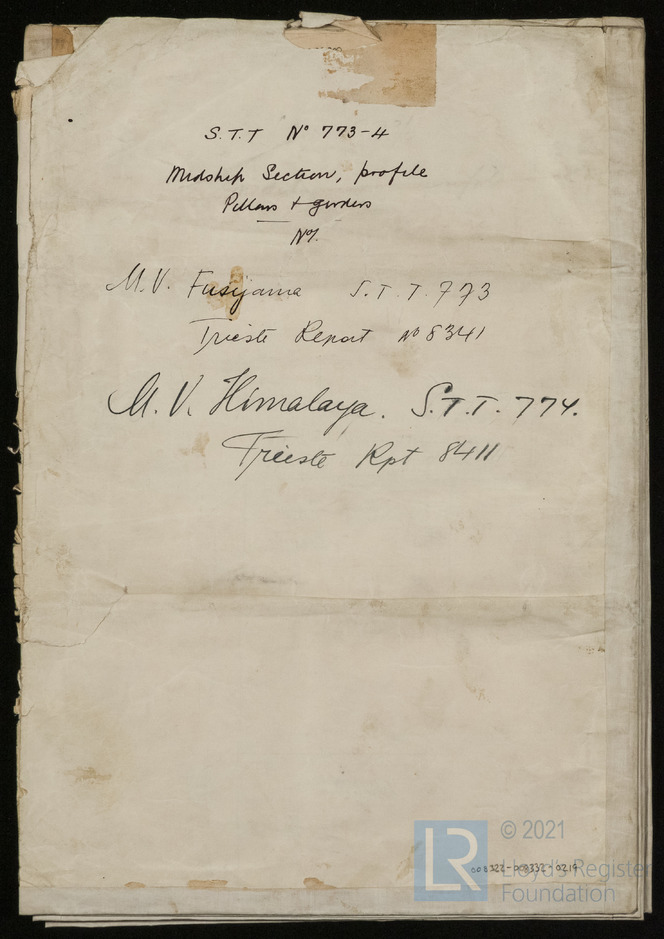 S.T.T Nº 773-4
Midship Section, profile
Pillars + girders
Nº1.
M.V. Fusijama S.T.T. 773
Trieste Report nº 8341
M.V. Himalaya. S.T.T. 774.
Trieste Rpt 8411
LR © 2021
Lloyd's Register
Foundation
008322-008332-0219